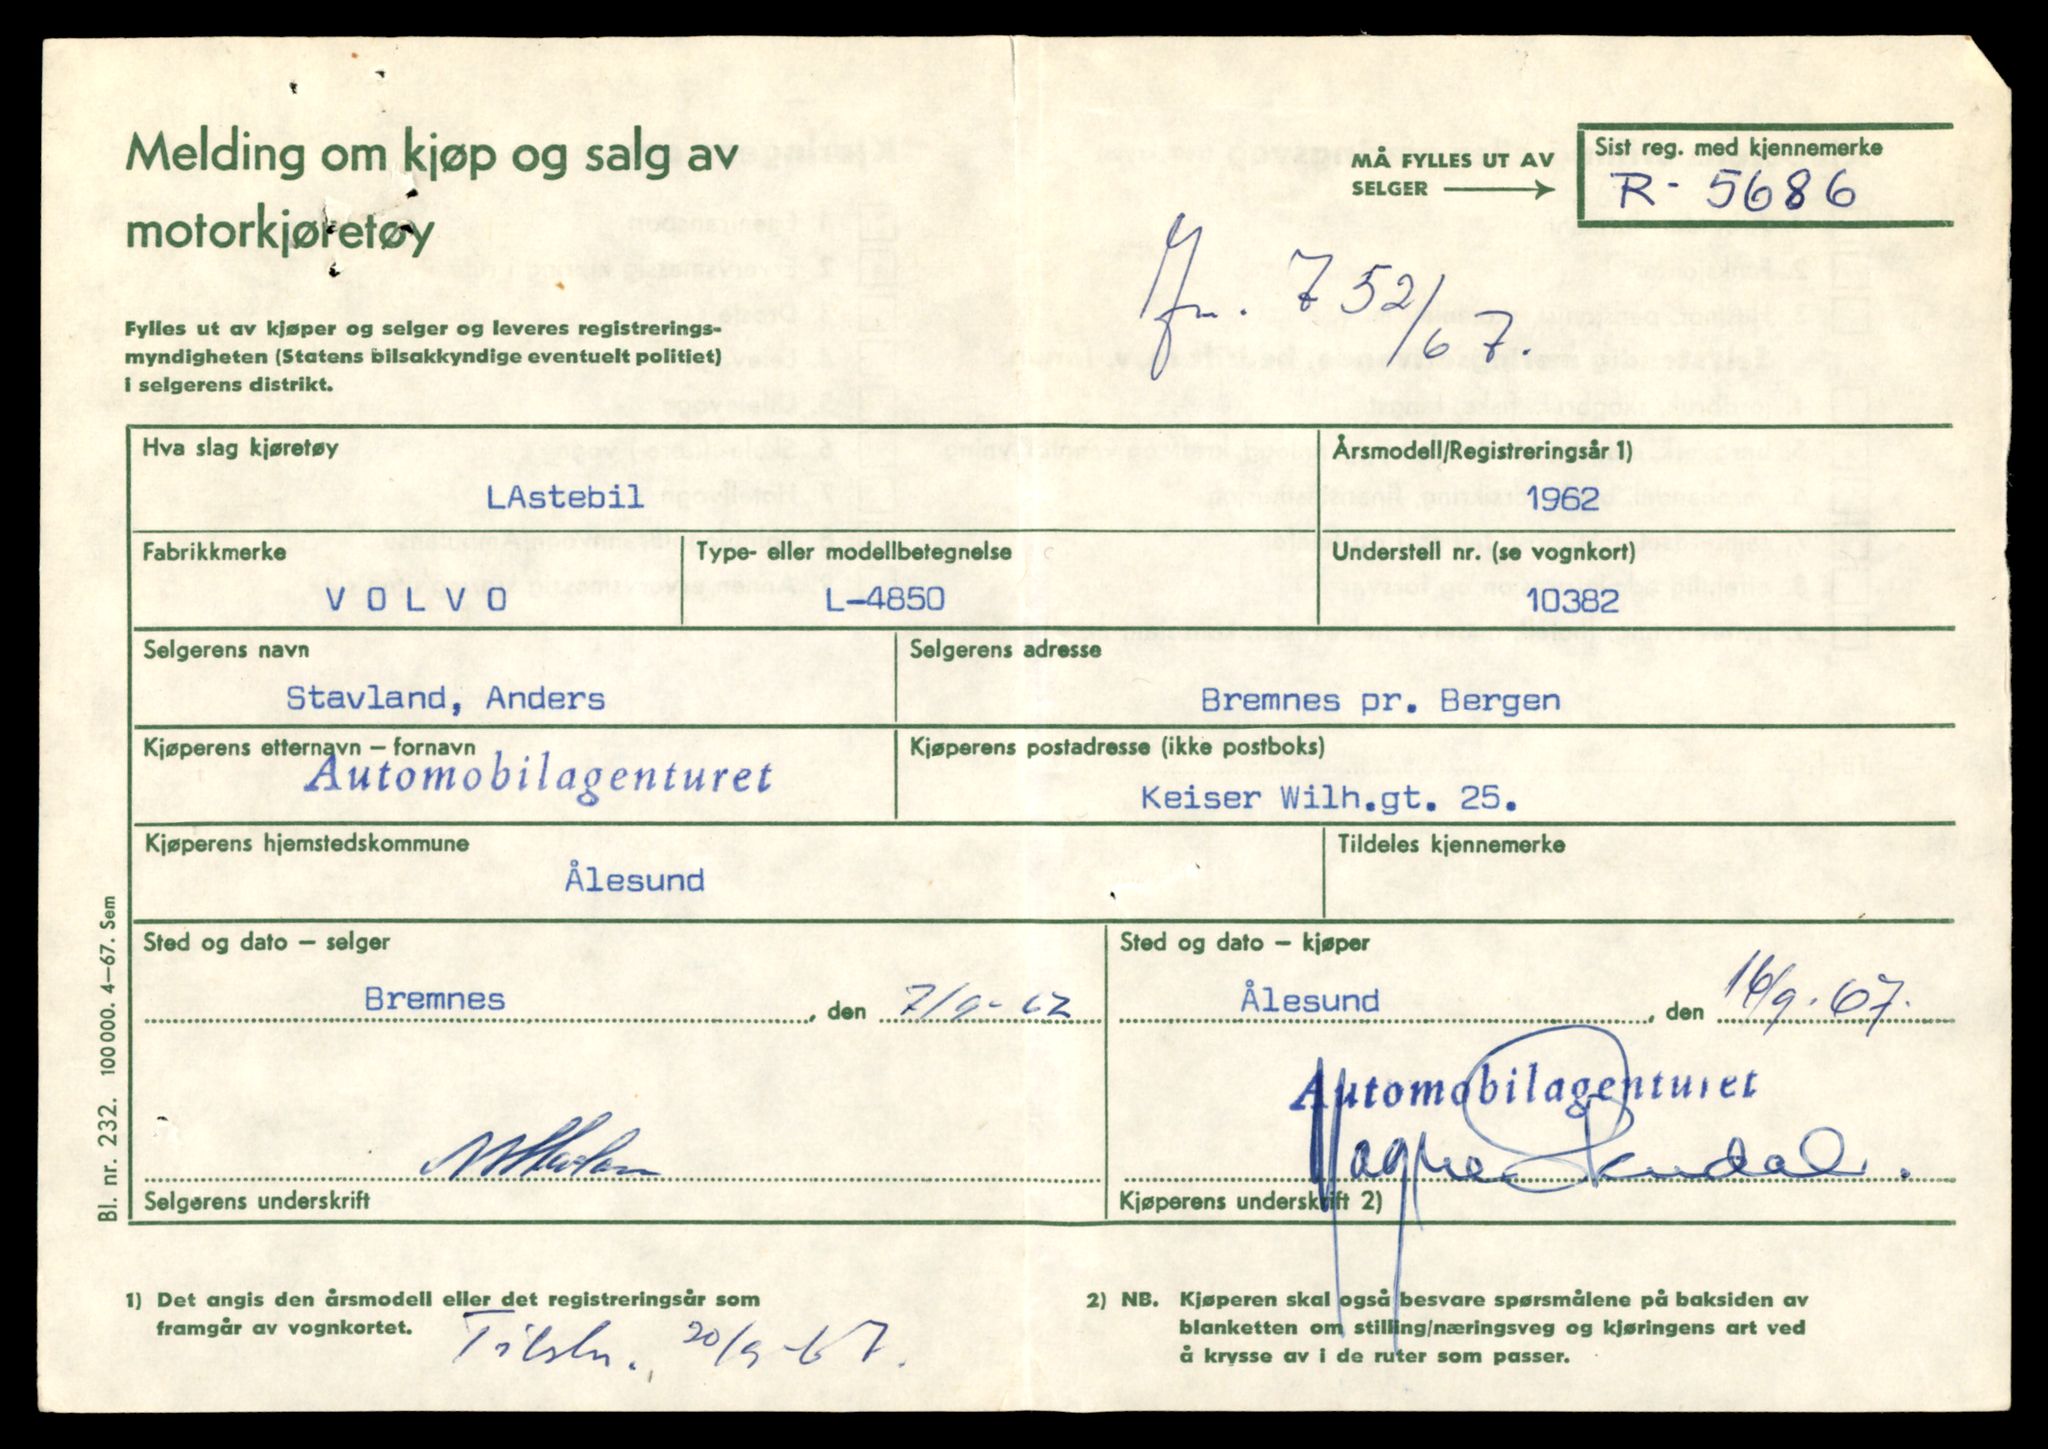 Melding om kjøp og salg av
motorkjøretøy
MÅ FYLLES UT AV
SELGER
Sist reg. med kjennemerke
R - 5686
Jfn. 752/67.
Fylles ut av kjøper og selger og leveres registrerings-
myndigheten (Statens bilsakkyndige eventuelt politiet)
i selgerens distrikt.
Hva slag kjøretøy
LAstebil
Årsmodell/Registreringsår 1)
1962
Fabrikkmerke
V O L V O
Type- eller modellbetegnelse
L-4850
Understell nr. (se vognkort)
10382
Selgerens navn
Stavland, Anders
Selgerens adresse
Bremnes pr. Bergen
Kjøperens etternavn – fornavn
Automobilagenturet
Kjøperens postadresse (ikke postboks)
Keiser Wilh.gt. 25.
Kjøperens hjemstedskommune
Ålesund
Tildeles kjennemerke
Sted og dato – selger
Bremnes, den 7/9-67
Sted og dato – kjøper
Ålesund, den 16/9-67.
Automobilagenturet
Selgerens underskrift
Kjøperens underskrift 2)
Bl. nr. 232. 100 000. 4–67. Sem
1) Det angis den årsmodell eller det registreringsår som
framgår av vognkortet.
20/9-67.
2) NB. Kjøperen skal også besvare spørsmålene på baksiden av
blanketten om stilling/næringsveg og kjøringens art ved
å krysse av i de ruter som passer.